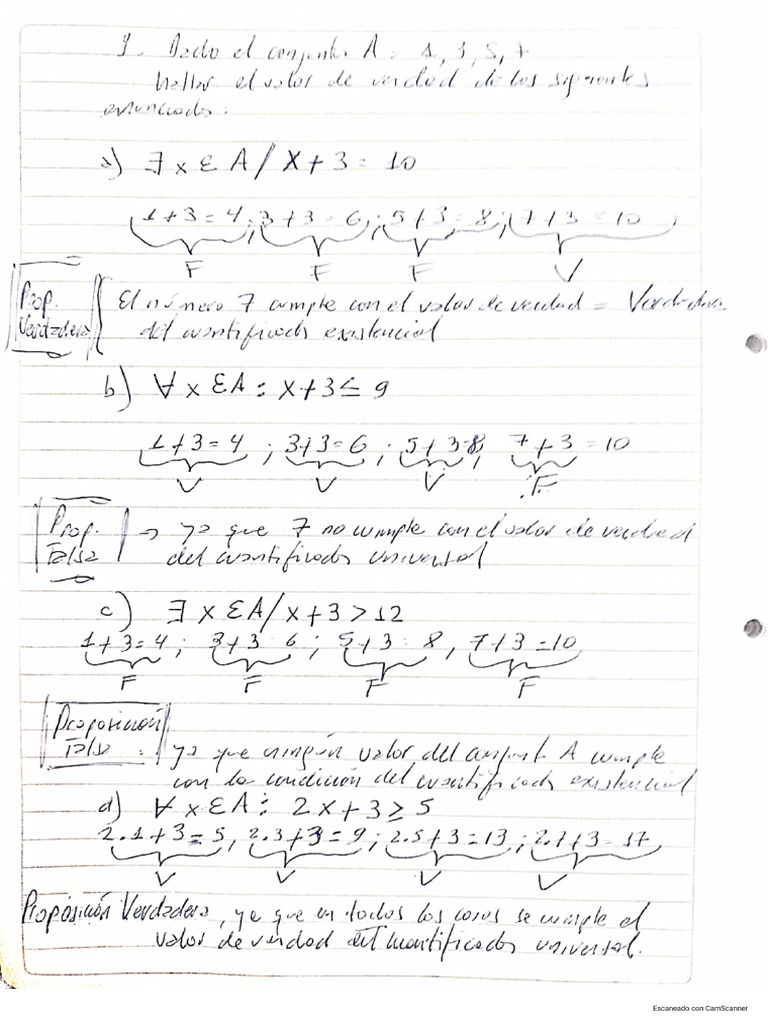 1- Dado el conjunto A = 1, 3, 5, 7
Hallar el valor de verdad de los siguientes
enunciados:
a) ∃ x ƐA / X + 3 = 10
1+3=4; 3+3=6; 5+3=8; 7+3=10
F F F V
Prop. Verdadera
El número 7 cumple con el valor de verdad = Verdadera
del cuantificado existencial
b) ∀ x ƐA : x+3 ≤ 9
1+3=4 ; 3+3=6 ; 5+3=8; 7+3=10
V V V F
Prop. Falsa
→ ya que 7 no cumple con el valor de verdad
del cuantificado universal
c) ∃ x ƐA / x+3 > 12
1+3=4; 3+3 6; 5+3 = 8, 7+3=10
F F F F
Proposición
Falsa : ya que ningún valor del conjunto A cumple
con la condición del cuantificado existencial
d) ∀ x ƐA: 2x+3 ≥ 5
2.1+3=5, 2.3+3=9; 2.5+3=13; 2.7+3=17
V V V V
Proposición Verdadera, ya que en todos los casos se cumple el
valor de verdad del cuantificado universal.
Escaneado con CamScanner